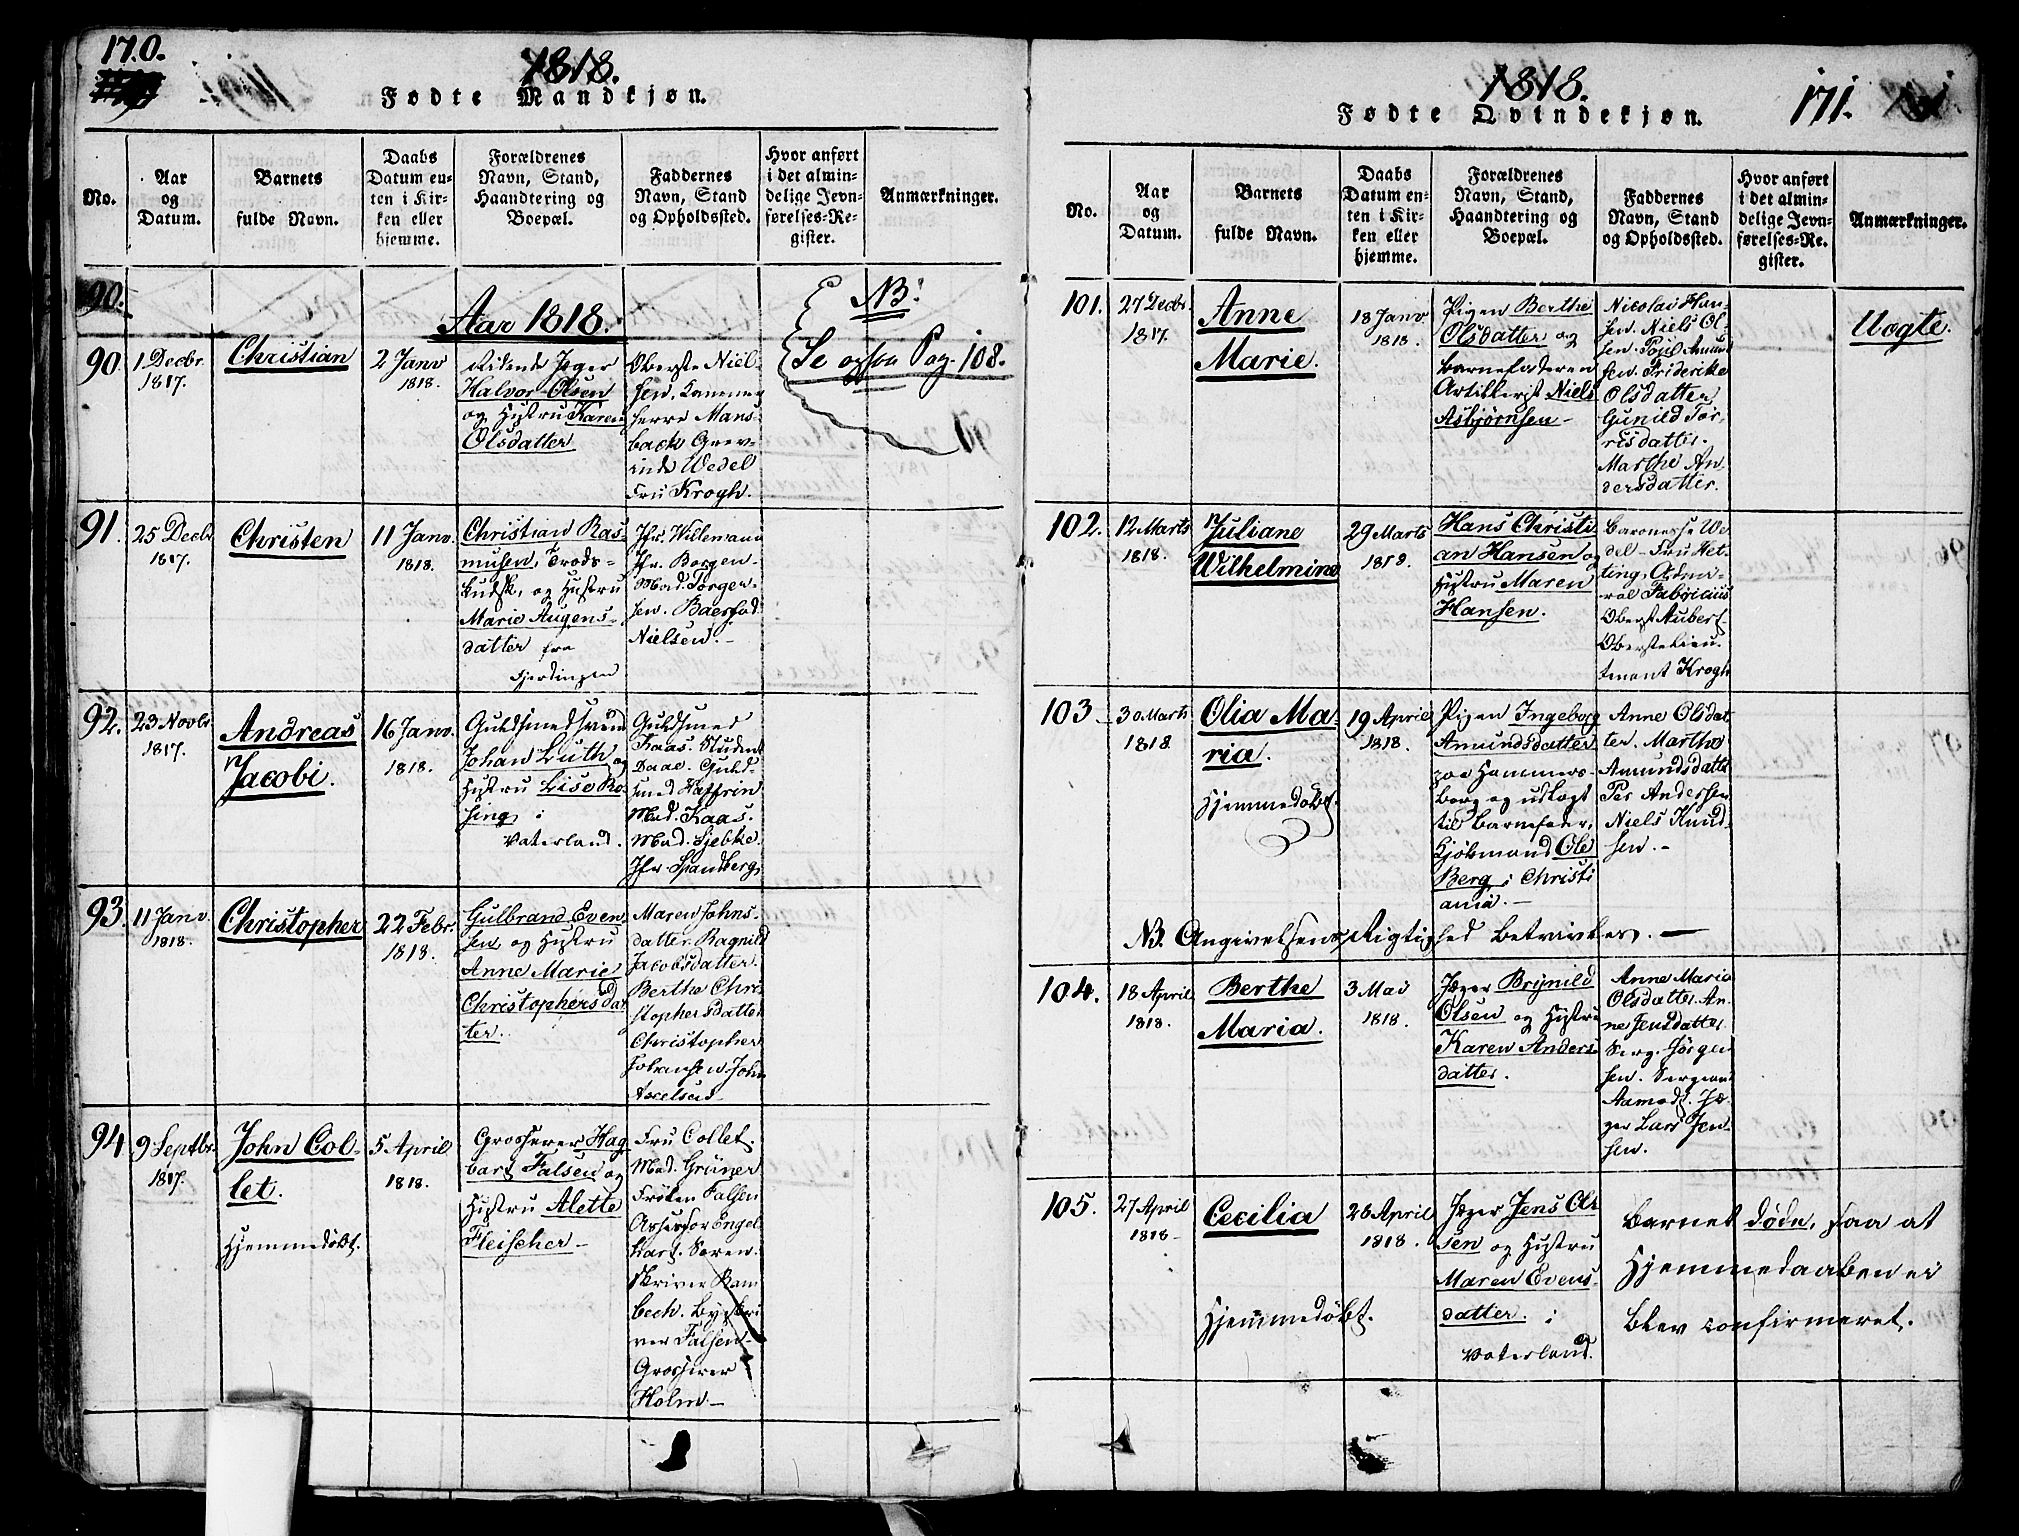 170.
1818.
Fødte Mandkjøn.
No.
Aar
og
Datum.
Barnets
fulde Navn.
Daabs
Datum en-
ten i Kir-
ken eller
hjemme.
Forældrenes
Navn, Stand,
Haandtering og
Boepæl.
Faddernes
Navn, Stand
og Opholdssted.
Hvor anført
i det almin-
delige Jevn-
førelses-Re-
gister.
Anmærkninger.
90.
Aar 1818.
NB!
Se ogsaa Pag. 108.
90.
1 Decbr
1817.
Christian
2 Janv
1818.
Ridende Jæger
Halvor Olsen
og Hustru Karen
Olsdatter
Oberste Niel-
sen, Kammer
herre Mans-
bach Grev-
inde Wedel
Fru Krogh.
91.
25 Decbr
1817.
Christen
11 Janv.
1818.
Christian Ras-
musen,
Kudsk, og Hustru
Marie Augens-
datter fra
Fjerdingen
Jfr. Willemann
Jfr. Borgen-
Mad. Jørgen-
sen.
Nielsen. -
92.
23 Novbr
1817.
Andreas
Jacobi.
16 Janv.
1818.
Guldsmedsvend
Johan Luth og
Hustru Lise Ro-
sing i
Vaterland.
Guldsmed
Kaas. Student
Daae. Guld-
smed
Mad. Kaas.
Mad. Sjebke.
Jfr Spandberg,
93.
11 Janv.
1818.
Christopher
22 Febr.
1818.
Gulbrand Even
sen og Hustru
Anne Marie
Christophersdat
ter.
Maren Johns-
datter. Ragnild
Jacobsdatter.
Berthe Chri
stophersdatter
Christopher
Johansen John
Axelsen-
94
9 Septbr.
1817.
John Col-
let.
Hjemmedøbt.
5 April
1818.
Grosserer Hag
bart Falsen og
Hustru Alette
Fleischer-
Fru Collet.
Mad. Grüner
Frøken Falsen
Assessor Engel
hart. Soren-
skriver Ram
bech. Byskri
ver Falsen-
Grosserer
Holm-
1818.
Fødte Qvindekjøn.
171.
No.
Aar
og
Datum.
Barnets
fulde Navn.
Daabs
Datum en-
ten i Kir-
ken eller
hjemme.
Forældrenes
Navn, Stand,
Haandtering og
Boepæl.
Faddernes
Navn, Stand
og Opholdssted.
Hvor anført
i det almin-
delige Jevn-
førelses-Re-
gister.
Anmærkninger.
101.
27 Decbr.
1817.
Anne
Marie.
18 Janv
1818.
Pigen Berthe
Olsdatter og
Barnefaderen
Artillerist Niels
Asbjørnsen-
Nicolai Han-
sen. Niels Ol-
sen. Amund
sen. Friderike
Olsdatter
Gunild Tor-
risdatter.
Marthe An
dersdatter.
Uægte.
102.
12 Marts
1818.
Juliane
Wilhelmine
29 Marts
1818.
Hans Christi
an Hansen og
Hustru Maren
Hansen.
Baronesse We
del- Fru Het-
ting, Admi-
ral Fabricius
Oberst Aubert-
Oberstelieu-
tenant Krogh
103
30 Marts
1818.
Olia Ma-
ria.
Hjemmedøbt.
19 April
1818.
Pigen Ingeborg
Amundsdatter
paa Hammers-
borg og udlagt
til Barnefader,
Kjøbmand Ole
Berg i Christi
ania.-
Anne Olsdat-
ter. Marthe
Amundsdatter
Per Andersen
Niels Knud-
sen.-
NB. Angivelsens Rigtighed betvivles. -
104.
18 April
1818.
Berthe
Maria.
3 Mai
1818.
Jæger Brynild
Olsen og Hustru
Karen Anders-
datter.
Anne Maria
Olsdatter. An-
ne Jensdatter
Serg. Jørgen
sen. Sergeant
Aamodt. Jæ-
ger Lars Jen-
sen.
105.
27 April
1818-
Cecilia
Hjemmedøbt.
26 April
1818.
Jæger Jens Ol-
sen og Hustru
Maren Evens-
datter. i
Vaterland.
Barnet døde, saa at
Hjemmedaaben ei
blev confirmeret.